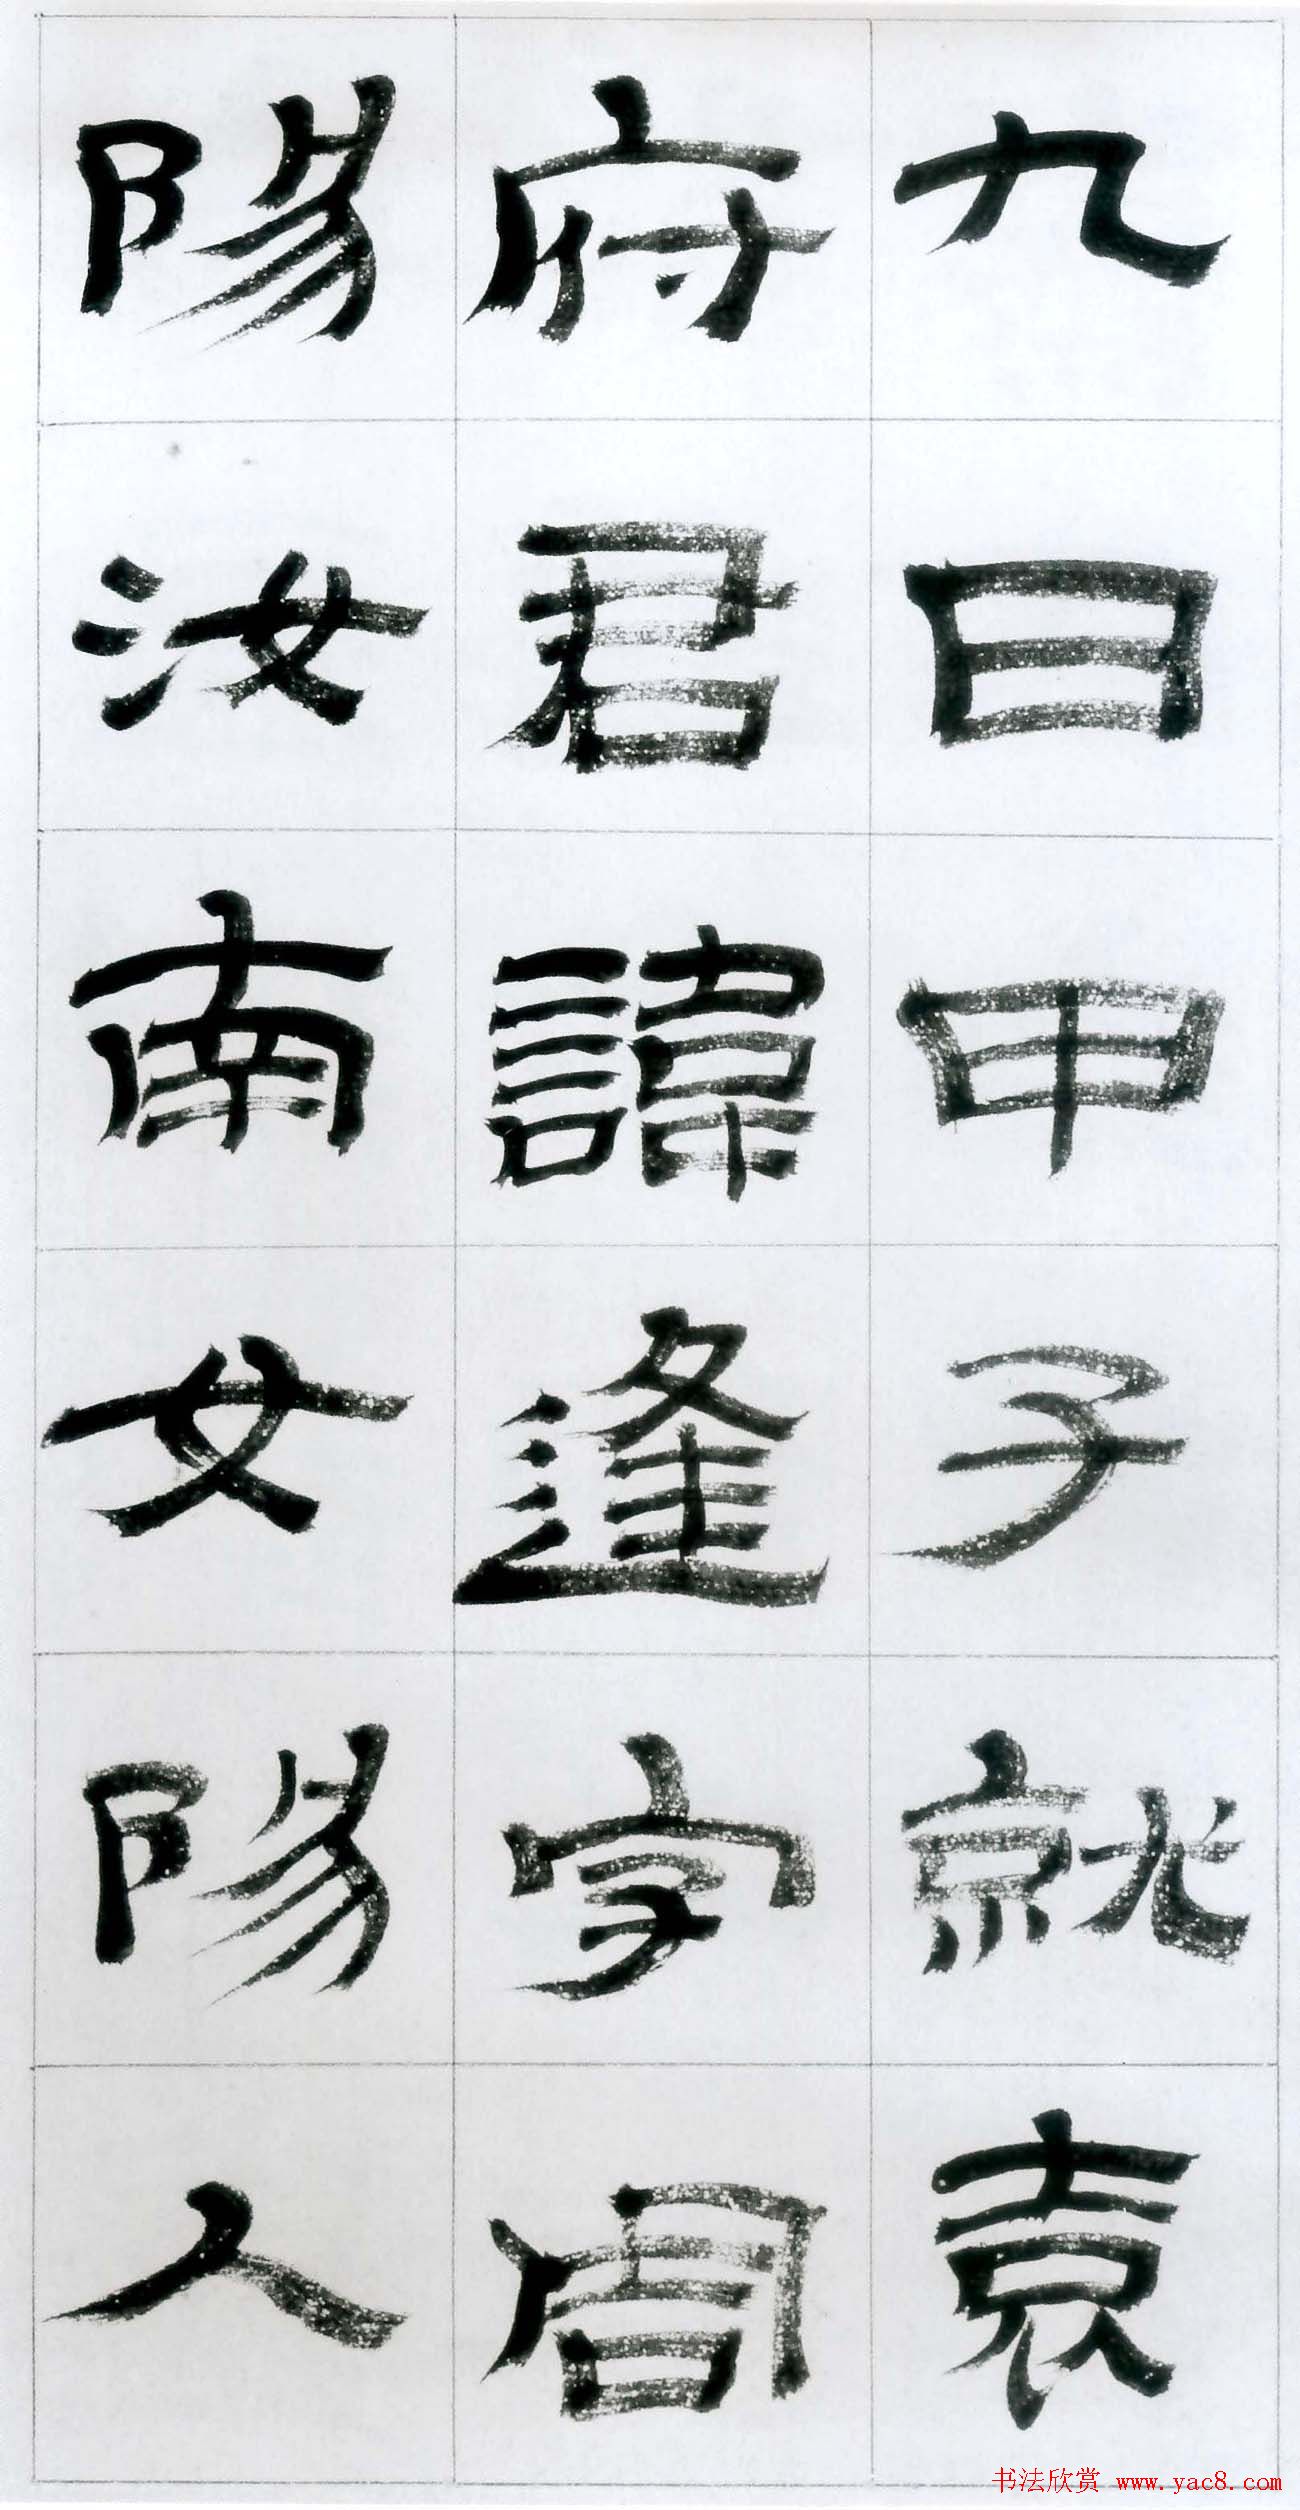 九日甲子就袁
府君諱逢字周
陽汝南女陽人
书法欣赏 www.yac8.com